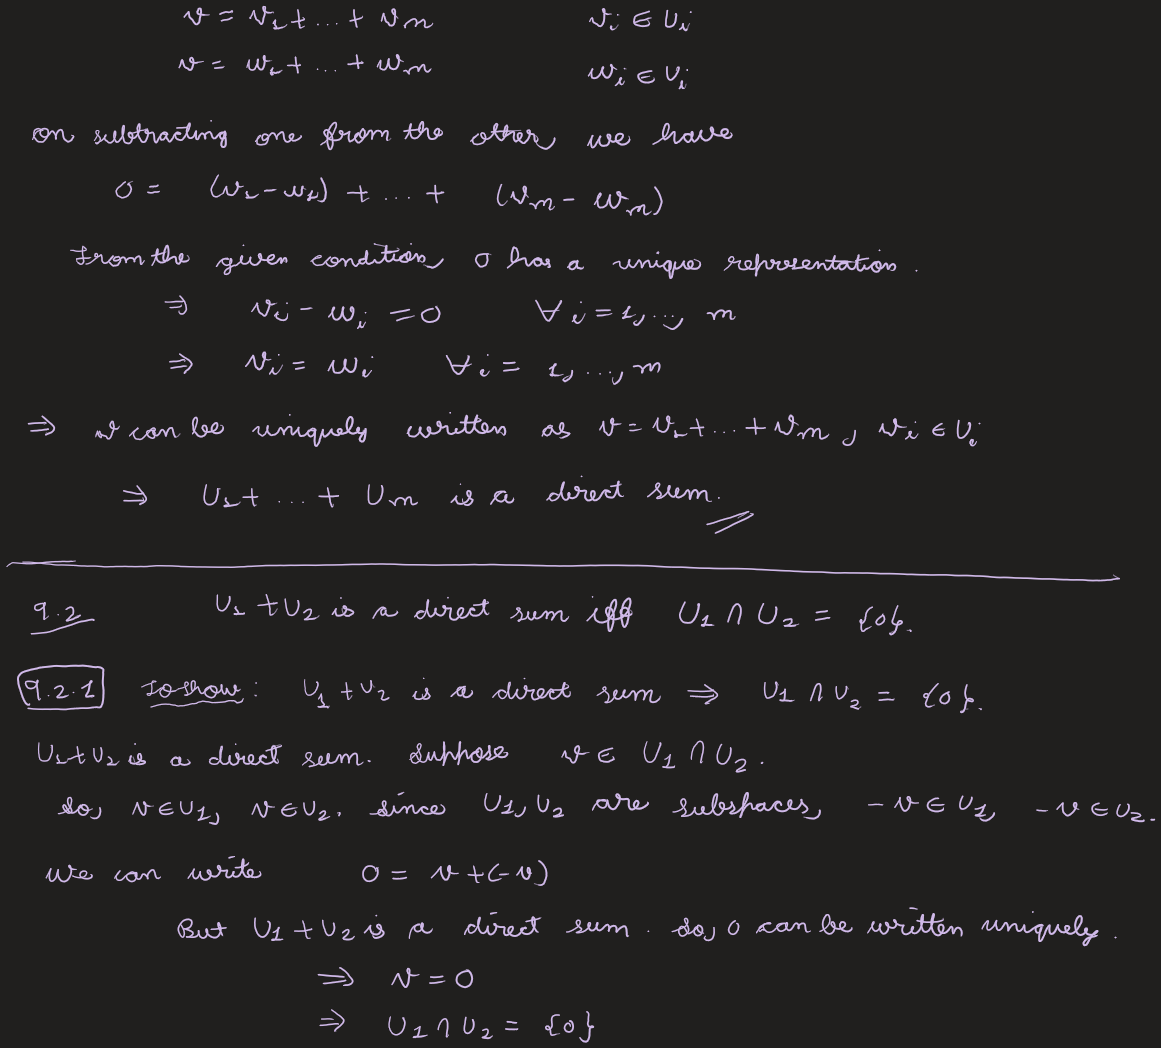 v = v₁ + ... + vₘ vᵢ ∈ Uᵢ
v = w₁ + ... + wₘ wᵢ ∈ Uᵢ
on subtracting one from the other, we have
0 = (v₁ - w₁) + ... + (vₘ - wₘ)
From the given condition, 0 has a unique representation.
⇒ vᵢ - wᵢ = 0 ∀ i = 1, ..., m
⇒ vᵢ = wᵢ ∀ i = 1, ..., m
⇒ v can be uniquely written as v = v₁ + ... + vₘ, vᵢ ∈ Uᵢ
⇒ U₁ + ... + Uₘ is a direct sum.
9.2 U₁ + U₂ is a direct sum iff U₁ ∩ U₂ = {0}.
9.2.1 To show: U₁ + U₂ is a direct sum ⇒ U₁ ∩ U₂ = {0}.
U₁ + U₂ is a direct sum. Suppose v ∈ U₁ ∩ U₂.
So, v ∈ U₁, v ∈ U₂. Since U₁, U₂ are subspaces, -v ∈ U₁, -v ∈ U₂.
We can write 0 = v + (-v)
But U₁ + U₂ is a direct sum. So, 0 can be written uniquely.
⇒ v = 0
⇒ U₁ ∩ U₂ = {0}